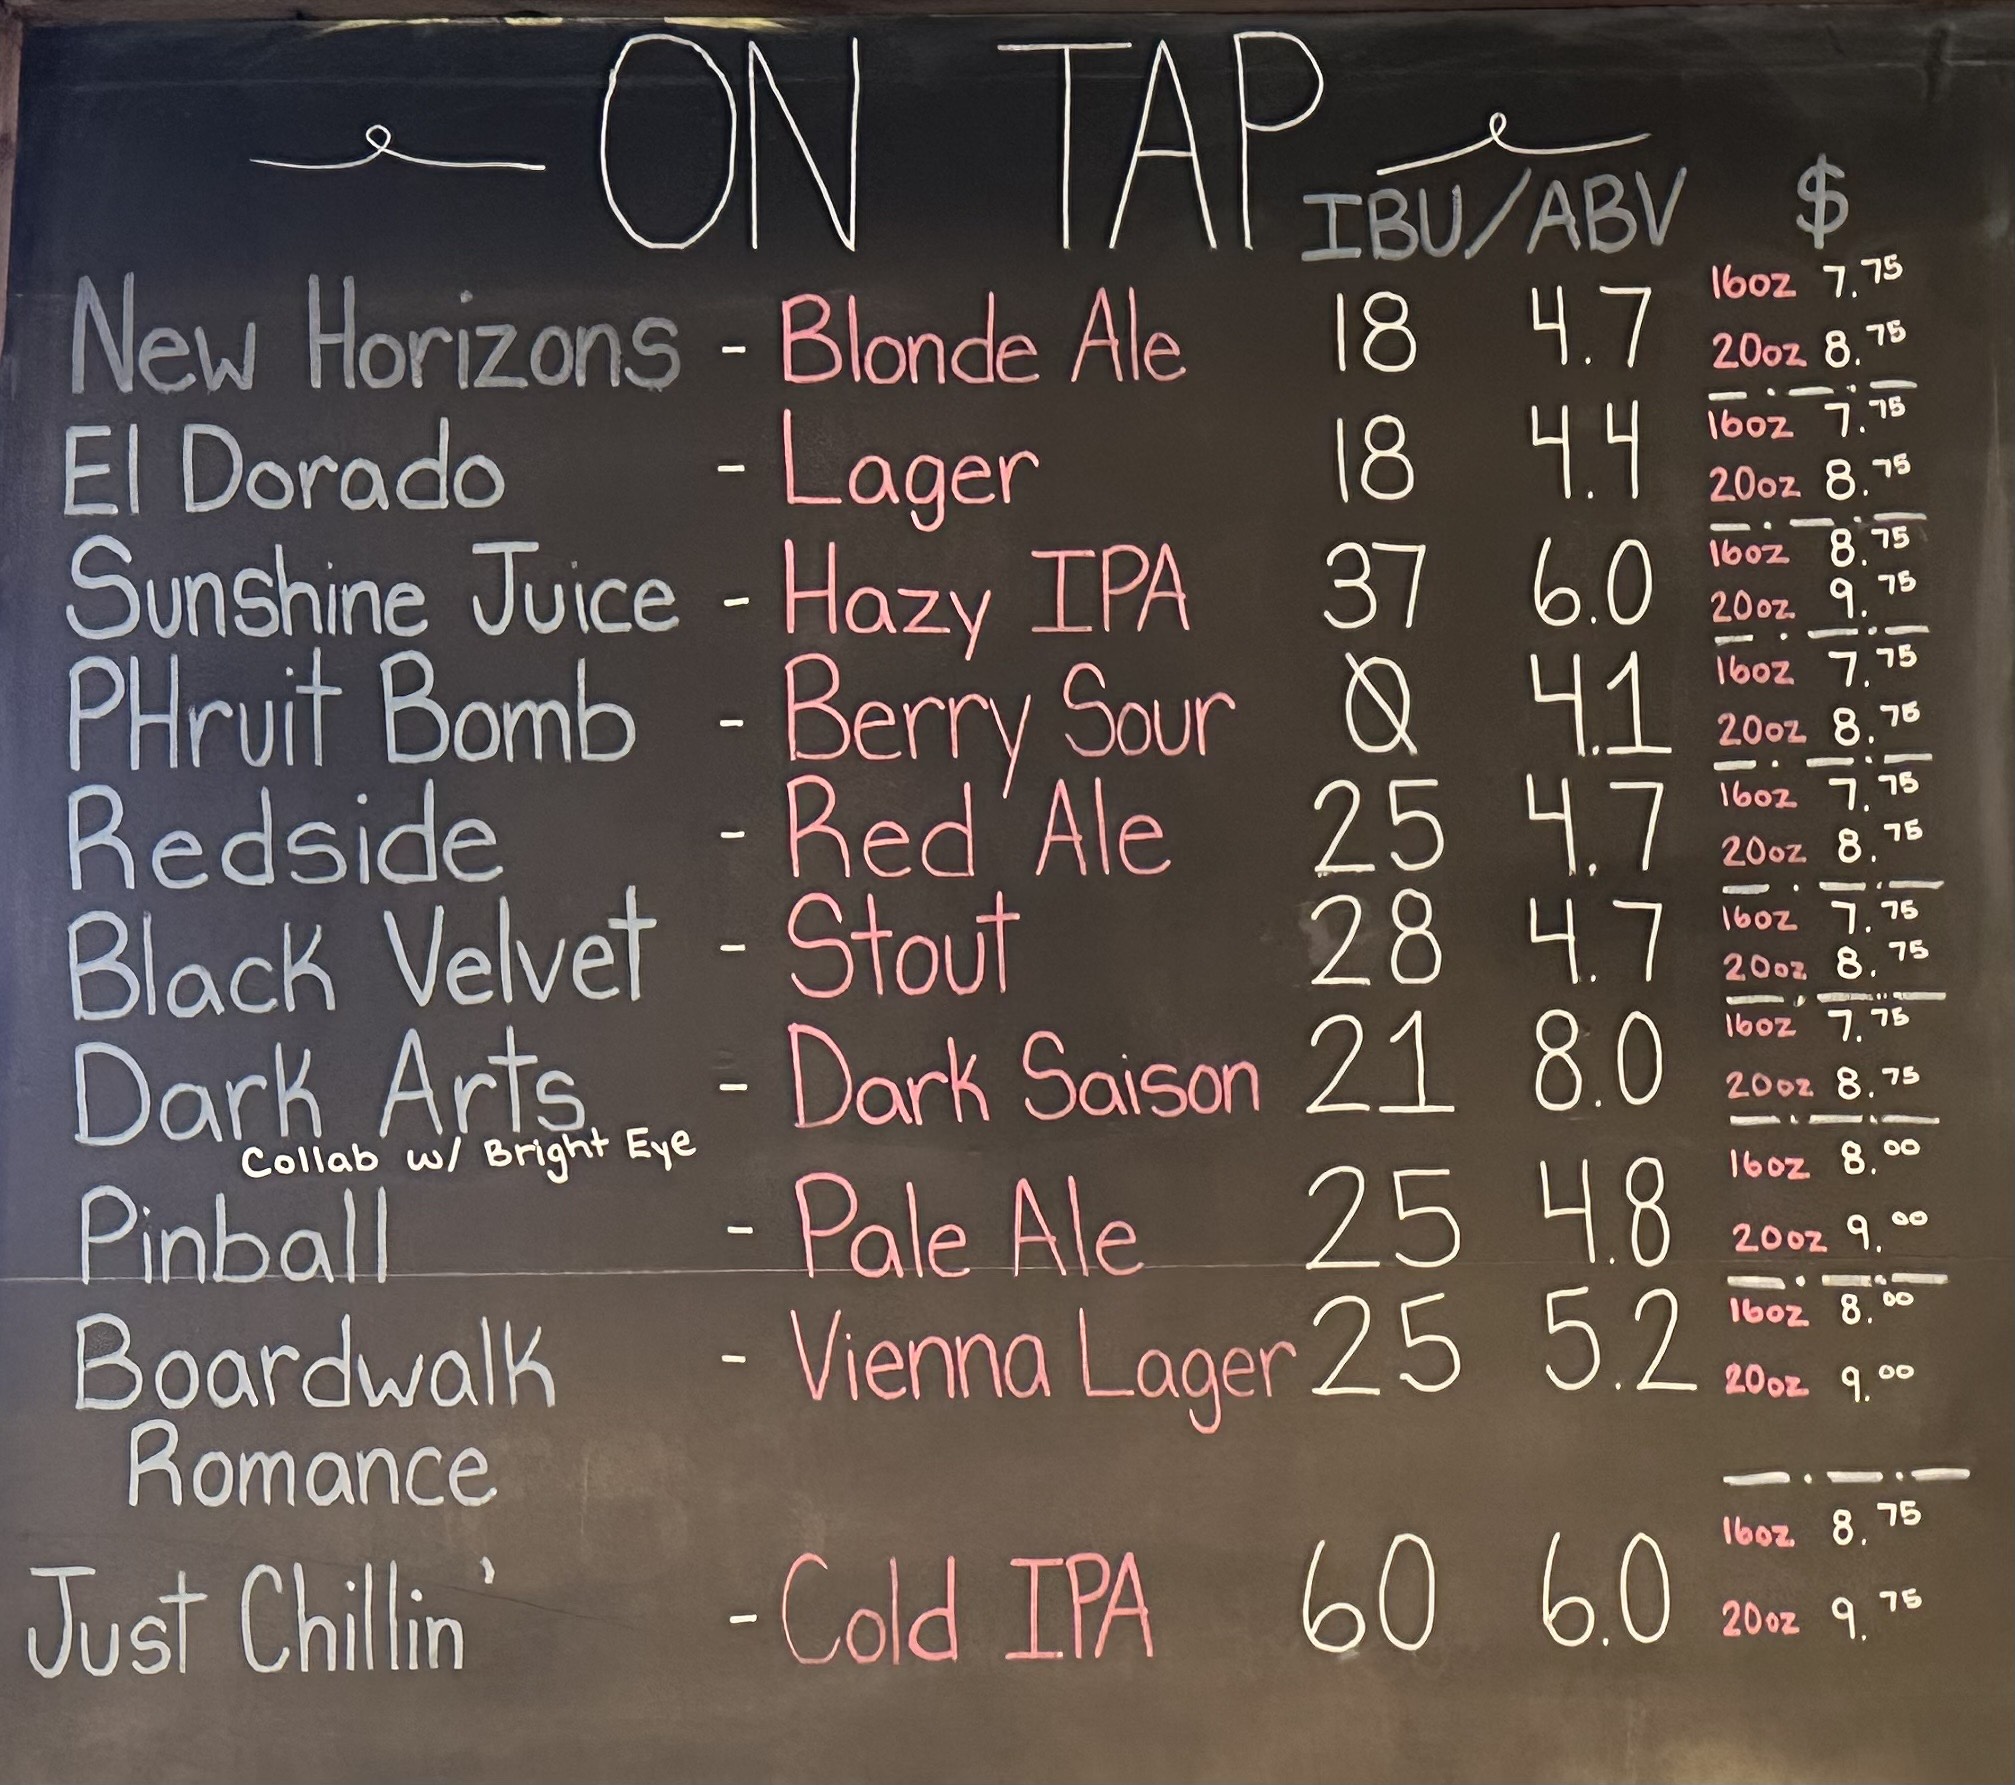 ON TAP
IBU/ABV $
New Horizons - Blonde Ale 18 4.7 16oz 7.75
20oz 8.75
El Dorado - Lager 18 4.4 16oz 7.75
20oz 8.75
Sunshine Juice - Hazy IPA 37 6.0 16oz 8.75
20oz 9.75
PHruit Bomb - Berry Sour 0 4.1 16oz 7.75
20oz 8.75
Redside - Red Ale 25 4.7 16oz 7.75
20oz 8.75
Black Velvet - Stout 28 4.7 16oz 7.75
20oz 8.75
Dark Arts - Dark Saison 21 8.0 16oz 7.75
20oz 8.75
Collab w/ Bright Eye
Pinball - Pale Ale 25 4.8 16oz 8.00
20oz 9.00
Boardwalk - Vienna Lager 25 5.2 16oz 8.00
20oz 9.00
Romance
Just Chillin' - Cold IPA 60 6.0 16oz 8.75
20oz 9.75